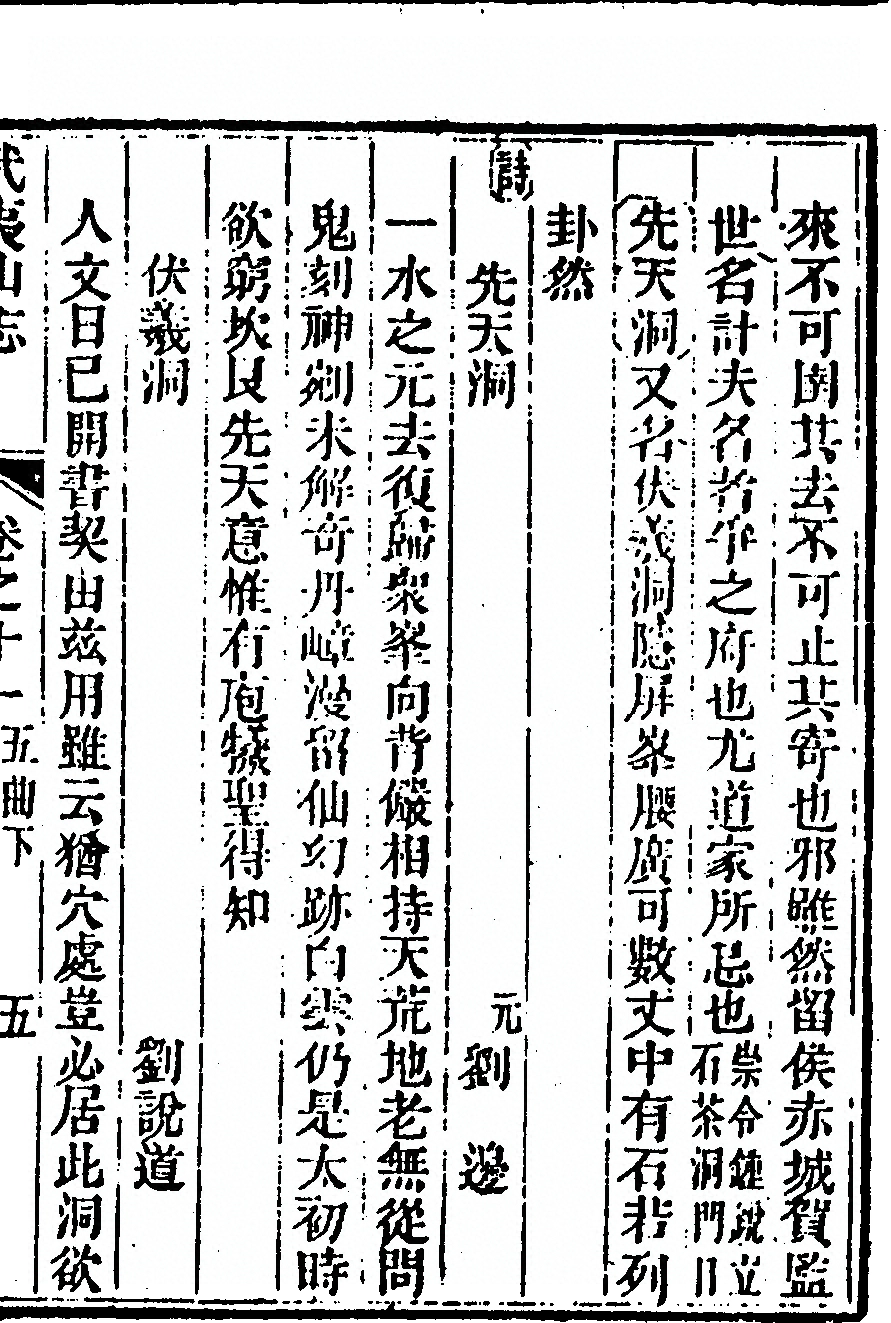 來不可圉其去不可止其寄也邪雖然留侯赤城賀監
世名計夫名者爭之府也尤道家所忌也崇令鍾銳立石茶洞門日
先天洞又名伏羲洞隱屏峯腰廣可數丈中有石若列
卦然
詩
先天洞 元劉邊
一水之元去復歸衆峯向背儼相持天荒地老無從問
鬼刻神剜未解奇丹嶂漫留仙幻跡白雲仍是太初時
欲窮坎艮先天意惟有庖犧聖得知
伏羲洞 劉說道
人文日已開書契由茲用雖云猶穴處豈必居此洞欲
武夷山志 卷之十一 五曲下 五